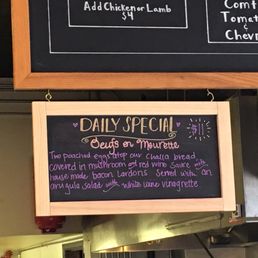 Add Chicken or Lamb
$4
Comf
Tomat
+
Chevr
DAILY SPECIAL
Oeufs en Meurette
$11
Two poached eggs atop our challa bread
covered in mushroom and red wine sauce with
house made bacon lardons. Served with an
arugula salad with white wine vinagrette